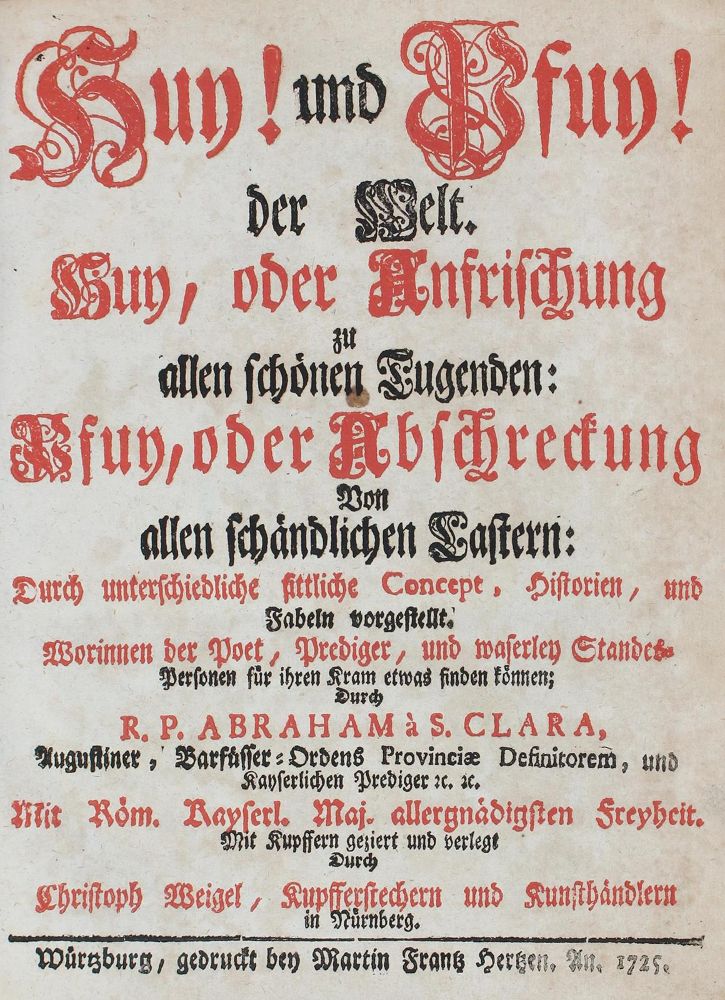 Huy! und Pfuy!
der Welt.
Huy, oder Anfrischung
zu
allen schönen Tugenden:
Pfuy, oder Abschreckung
Von
allen schändlichen Lastern:
Durch unterschiedliche sittliche Concept, Historien, und
Fabeln vorgestellt.
Worinnen der Poet, Prediger, und waserley Standes-
Personen für ihren Kram etwas finden können;
Durch
R. P. ABRAHAM à S. CLARA,
Augustiner, Barfüsser-Ordens Provinciæ Definitorem, und
Kayserlichen Prediger ꝛc. ꝛc.
Mit Röm. Kayserl. Maj. allergnädigsten Freyheit.
Mit Kupffern geziert und verlegt
Durch
Christoph Weigel, Kupfferstechern und Kunsthändlern
in Nürnberg.
Würtzburg, gedruckt bey Martin Frantz Hertzen. An. 1725.